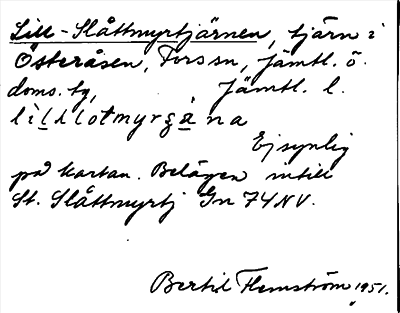 Lill-Slåttmyrtjärnen, tjärn i
Österåsen, Fors sn, Jämtl. ö.
doms. tg, Jämtl. l.
Ej synlig
på kartan. Belägen intill
St. Slåttmyrtj Gn 74NV.
Bertil Flemström 1951.